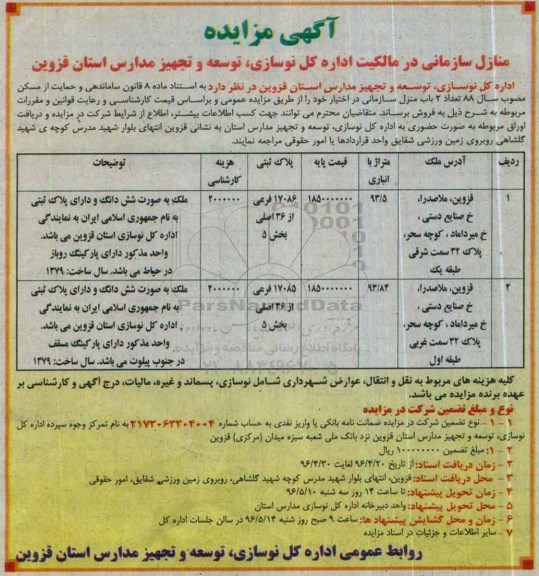 آگهی مزایده
منازل سازمانی در مالکیت اداره کل نوسازی، توسعه و تجهیز مدارس استان قزوین
اداره کل نوسازی، توسعه و تجهیز مدارس استان قزوین در نظر دارد به استناد ماده ۸ قانون ساماندهی و حمایت از مسکن
مصوب سال ۸۸ تعداد ۲ باب منزل سازمانی در اختیار خود را از طریق مزایده عمومی و براساس قیمت کارشناسی و رعایت قوانین و مقررات
مربوطه به شرح ذیل به فروش برساند. متقاضیان محترم می توانند جهت کسب اطلاعات بیشتر، اطلاع از شرایط شرکت در مزایده و دریافت
اوراق مربوطه به صورت حضوری به اداره کل نوسازی، توسعه و تجهیز مدارس استان به نشانی قزوین انتهای بلوار شهید مدرس کوچه ی شهید
گلشاهی روبروی زمین ورزشی شقایق واحد قراردادها یا امور حقوقی مراجعه نمایند.
ردیف آدرس ملک متراژ با انباری قیمت پایه پلاک ثبتی هزینه کارشناسی توضیحات
۱ قزوین، ملاصدرا، ۹۳/۵ ۱۸۵۰۰۰۰۰۰۰ ۱۷۰۸۶ فرعی ۲۰۰۰۰۰۰ ملک به صورت شش دانگ و دارای پلاک ثبتی
خ صنایع دستی، از ۳۶ اصلی به نام جمهوری اسلامی ایران به نمایندگی
خ میرداماد، کوچه سحر، بخش ۵ اداره کل نوسازی استان قزوین می باشد.
پلاک ۳۲ سمت شرقی واحد مذکور دارای پارکینگ روباز
طبقه یک در حیاط می باشد. سال ساخت: ۱۳۷۹
۲ قزوین، ملاصدرا، ۹۳/۸۴ ۱۸۵۰۰۰۰۰۰۰ ۱۷۰۸۵ فرعی ۲۰۰۰۰۰۰ ملک به صورت شش دانگ و دارای پلاک ثبتی
خ صنایع دستی، از ۳۶ اصلی به نام جمهوری اسلامی ایران به نمایندگی
خ میرداماد، کوچه سحر، بخش ۵ اداره کل نوسازی استان قزوین می باشد.
پلاک ۳۲ سمت غربی واحد مذکور دارای پارکینگ مسقف
طبقه اول در جنوب پیلوت می باشد. سال ساخت: ۱۳۷۹
ParsNamadData
کلیه هزینه های مربوط به نقل و انتقال، عوارض شهرداری شامل نوسازی، پسماند و غیره، مالیات، درج آگهی و کارشناسی بر
عهده برنده مزایده می باشد.
نوع و مبلغ تضمین شرکت در مزایده
۱ - ۱ - نوع تضمین شرکت در مزایده ضمانت نامه بانکی یا واریز نقدی به حساب شماره ۲۱۷۳۰۶۳۳۰۴۰۰۴ به نام تمرکز وجوه سپرده اداره کل
نوسازی، توسعه و تجهیز مدارس استان قزوین نزد بانک ملی شعبه سبزه میدان (مرکزی) قزوین
۲ - ۱: مبلغ تضمین ۱۰۰۰۰۰۰۰۰ ریال
۲ - زمان دریافت اسناد: از تاریخ ۹۶/۴/۲۰ لغایت ۹۶/۴/۳۰
۳ - محل دریافت اسناد: قزوین، انتهای بلوار شهید مدرس کوچه شهید گلشاهی، روبروی زمین ورزشی شقایق، امور حقوقی
۴ - زمان تحویل پیشنهاد: تا ساعت ۱۴ روز سه شنبه ۹۶/۵/۱۰
۵ - محل تحویل پیشنهاد: واحد دبیرخانه اداره کل نوسازی مدارس استان
۶ - زمان و محل گشایش پیشنهاد ها: ساعت ۹ صبح روز شنبه ۹۶/۵/۱۴ در سالن جلسات اداره کل
۷ - سایر اطلاعات و جزئیات در اسناد مزایده
روابط عمومی اداره کل نوسازی، توسعه و تجهیز مدارس استان قزوین